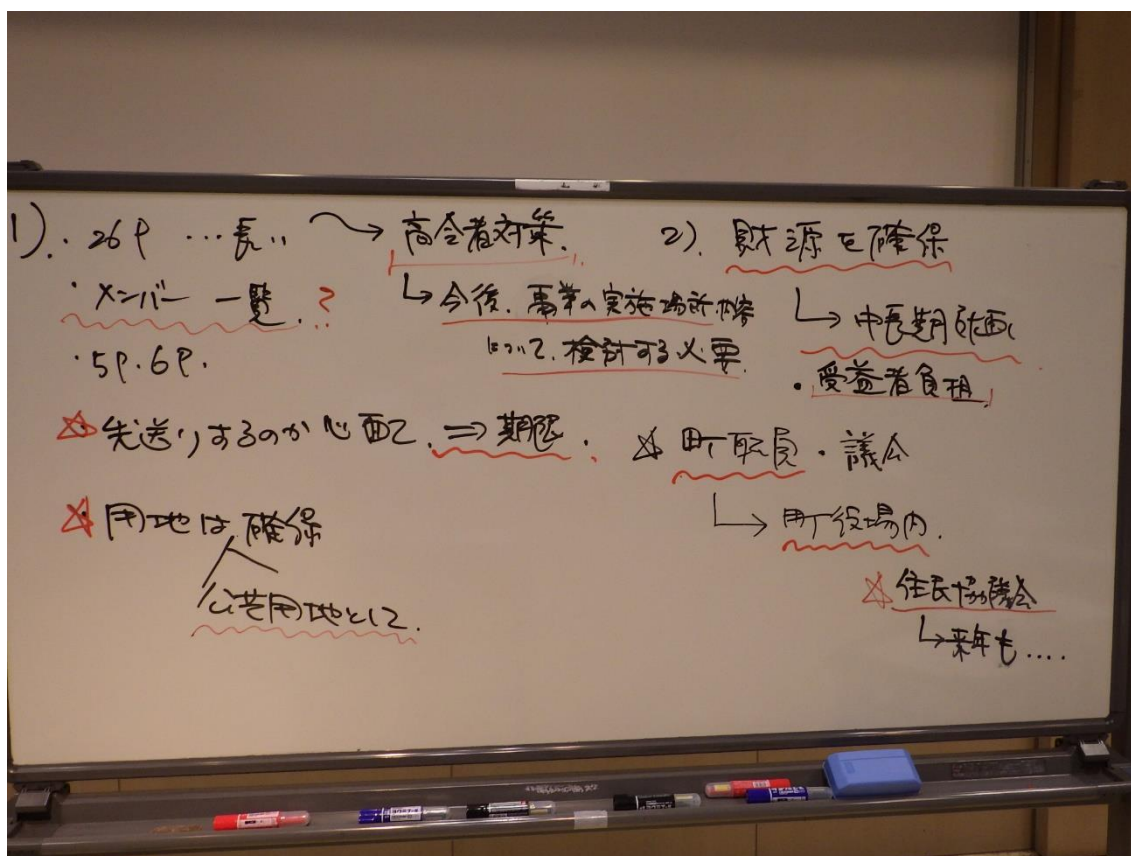 1). ・26P …長い → 高令者対策.
・メンバー 一覧.?
・5P.6P.
↳ 今後、事業の実施場所
について、検討する必要.
☆先送りするのか心配で. ⇒ 期限.
☆用地は、確保
公共用地として.
2). 財源を確保
↳ 中長期計画
・受益者負担
☆ 町職員・議会
↳ 町役場内.
☆ 住民協議会
↳ 来年も....